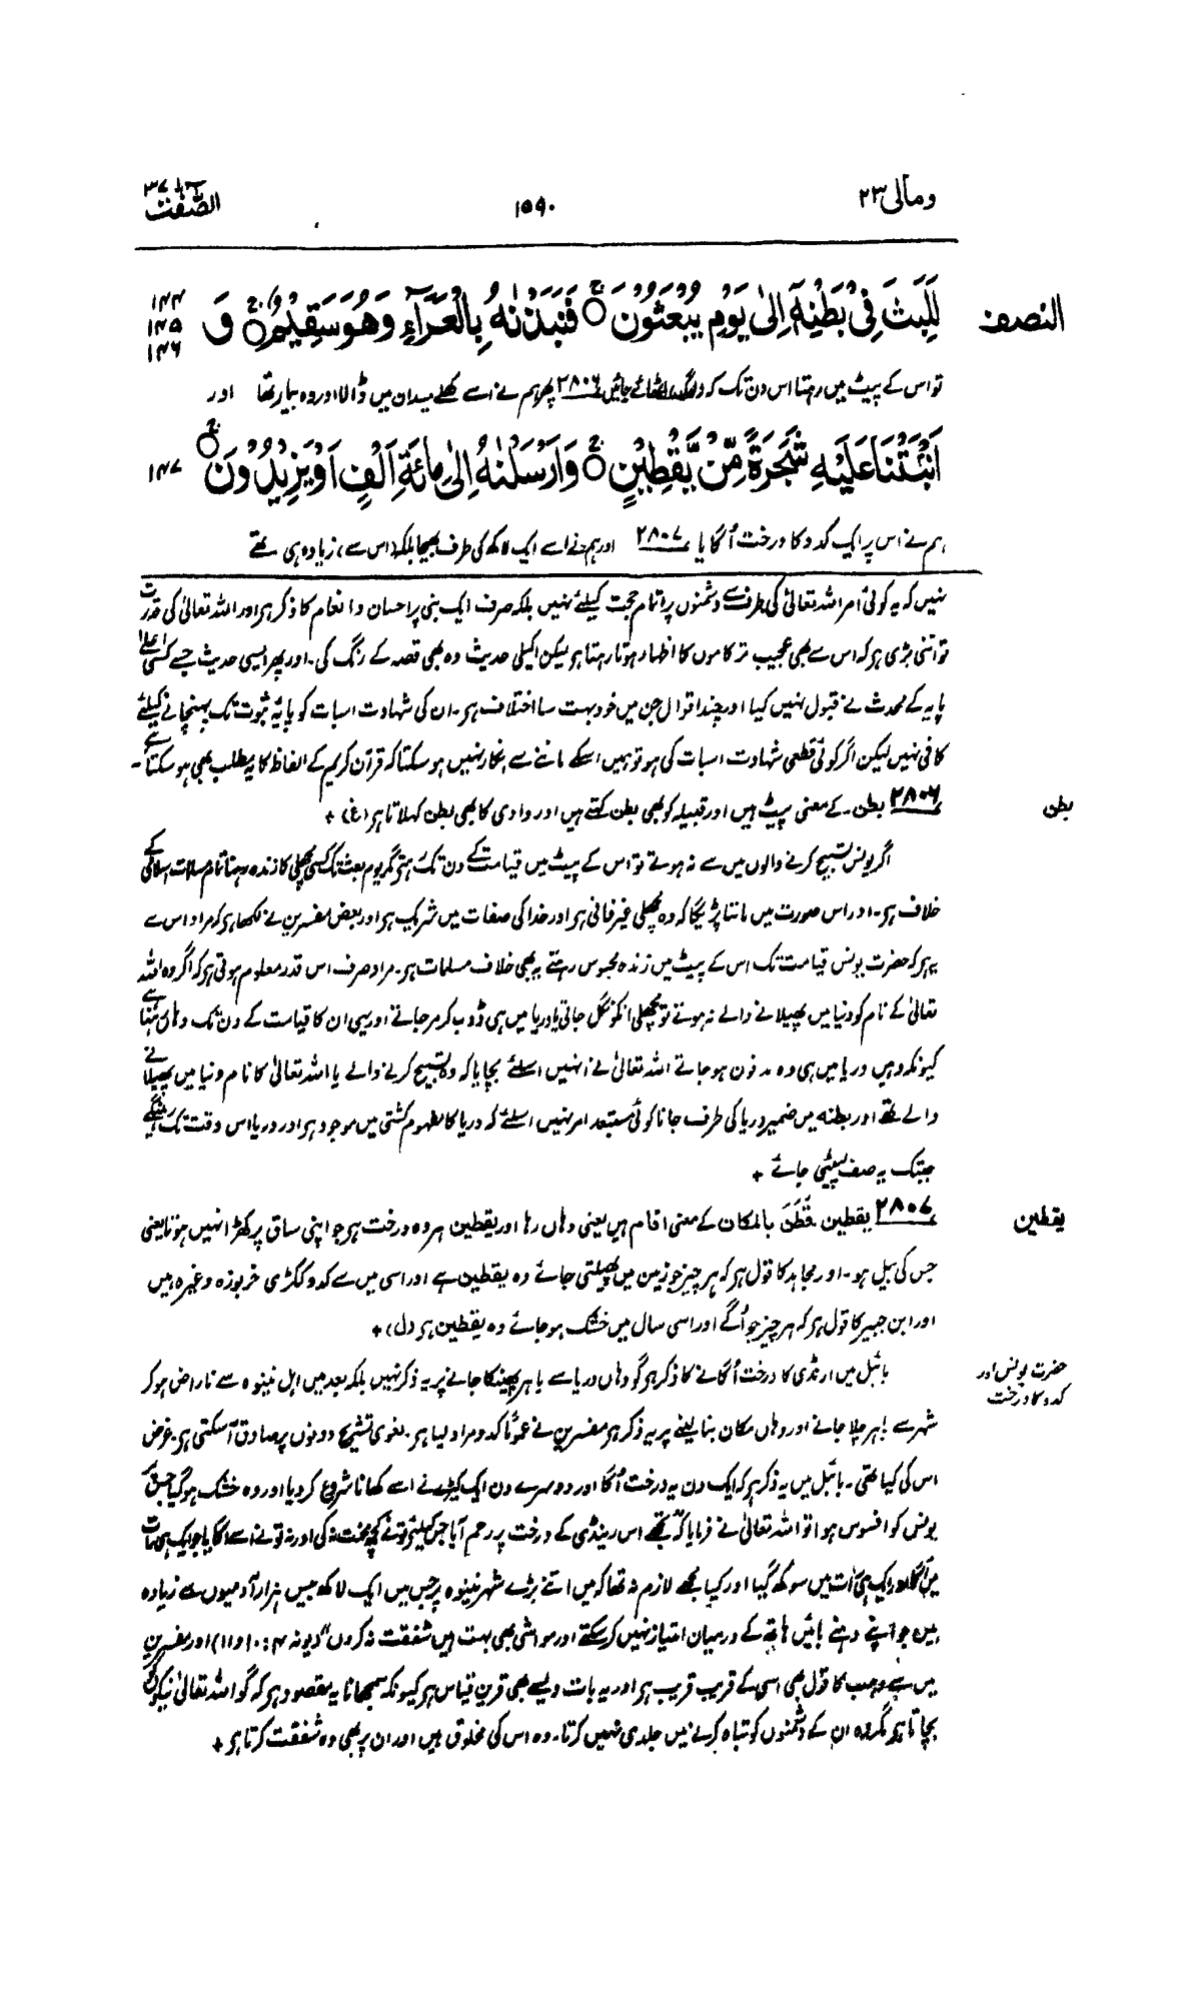 ومالی ۲۳
۱۵۹۰
الصّٰفّٰت ۳۷
النصف
لَلَبِثَ فِیْ بَطْنِهٖۤ اِلٰی یَوْمِ یُبْعَثُوْنَ ۝ فَنَبَذْنٰهُ بِالْعَرَآءِ وَهُوَ سَقِیْمٌ ۝ وَ
۱۴۴
۱۴۵
۱۴۶
تو اس کے پیٹ میں رہتا اس دن تک کہ لوگ اٹھائے جائیں ۲۸۰۶ پھر ہم نے اسے کھلے میدان میں ڈالا اور وہ بیمار تھا اور
اَنْۢبَتْنَا عَلَیْهِ شَجَرَةً مِّنْ یَّقْطِیْنٍ ۝ وَاَرْسَلْنٰهُ اِلٰی مِائَةِ اَلْفٍ اَوْ یَزِیْدُوْنَ ۝
۱۴۷
ہم نے اس پر ایک کدو کا درخت اُگایا ۲۸۰۷ اور ہم نے اسے ایک لاکھ کی طرف بھیجا بلکہ (اس سے) زیادہ ہی تھے
نہیں کہ یہ کوئی امر اللہ تعالیٰ کی طرف سے دشمنوں پر اتمام حجت کیلئے نہیں بلکہ صرف ایک نبی پر احسان و انعام کا ذکر ہے اور اللہ تعالیٰ کی قدرت
تو اتنی بڑی ہے کہ اس سے بھی عجیب تر کاموں کا اظہار ہوتا رہتا ہے لیکن اکیلی حدیث وہ بھی قصہ کے رنگ کی۔ اور پھر ایسی حدیث جسے کسی اعلیٰ
پایہ کے محدث نے قبول نہیں کیا اور چند اقوال جن میں خود بہت سا اختلاف ہے۔ ان کی شہادت اسبات کو پایۂ ثبوت تک پہنچانے کیلئے
کافی نہیں لیکن اگر کوئی قطعی شہادت اسبات کی ہو تو ہمیں اسکے ماننے سے انکار نہیں ہو سکتا کہ قرآن کریم کے الفاظ کا یہ مطلب بھی ہو سکتا ہے۔
بطن
۲۸۰۶ بطن۔ کے معنی پیٹ ہیں اور قبیلہ کو بھی بطن کہتے ہیں اور وادی کا بھی بطن کہلاتا ہے (غ) +
اگر یونس تسبیح کرنے والوں میں سے نہ ہوتے تو اس کے پیٹ میں قیامت کے دن تک رہتے مگر یوم بعث تک کسی مچھلی کا زندہ رہنا تمام مسلمات اسلامی کے
خلاف ہے۔ اور اس صورت میں ماننا پڑیگا کہ وہ مچھلی غیر فانی ہے اور خدا کی صفات میں شریک ہے اور بعض مفسرین نے لکھا ہے کہ مراد اس سے
یہ ہے کہ حضرت یونس قیامت تک اس کے پیٹ میں زندہ محبوس رہتے یہ بھی خلاف مسلمات ہے۔ مراد صرف اس قدر معلوم ہوتی ہے کہ اگر وہ اللہ
تعالیٰ کے نام کو دنیا میں پھیلانے والے نہ ہوتے تو مچھلی انکو نگل جاتی یا دریا میں ہی ڈوب کر مر جاتے اور یہی ان کا قیامت کے دن تک وہاں رہنا ہے
کیونکہ وہیں دریا میں ہی وہ مدفون ہو جاتے اللہ تعالیٰ نے انہیں اسلئے بچایا کہ وہ تسبیح کرنے والے یا اللہ تعالیٰ کا نام دنیا میں پھیلانے
والے تھے اور بطنہ میں ضمیر دریا کی طرف جانا کوئی مستبعد امر نہیں اسلئے کہ دریا کا مفہوم کشتی میں موجود ہے اور دریا اس وقت تک رہینگے
جبتک یہ صف لپیٹی جائے +
یقطین
۲۸۰۷ یقطین۔ قَطَنَ بالمکان کے معنی اقام ہیں یعنی وہاں رہا اور یقطین ہر وہ درخت ہے جو اپنی ساق پر کھڑا نہیں ہوتا یعنی
جس کی بیل ہو۔ اور مجاہد کا قول ہے کہ ہر چیز جو زمین میں پھیلتی جائے وہ یقطین ہے اور اسی میں سے کدو ککڑی خربوزہ وغیرہ ہیں
اور ابن جبیر کا قول ہے کہ ہر چیز جو اُگے اور اسی سال میں خشک ہو جائے وہ یقطین ہے (ل) +
حضرت یونس اور
کدو کا درخت
بائبل میں ارنڈی کا درخت اُگانے کا ذکر ہے گو وہاں دریا سے باہر پھینکا جانے پر یہ ذکر نہیں بلکہ بعد میں اہل نینوہ سے ناراض ہو کر
شہر سے باہر چلا جانے اور وہاں مکان بنا لینے پر یہ ذکر ہے مفسرین نے عموماً کدو مراد لیا ہے۔ لغوی تشریح دونوں پر صادق آسکتی ہے۔ غرض
اس کی کیا تھی۔ بائبل میں یہ ذکر ہے کہ ایک دن یہ درخت اُگا اور دوسرے دن ایک کیڑے نے اسے کھانا شروع کر دیا اور وہ خشک ہو گیا جس پر
یونس کو افسوس ہوا تو اللہ تعالیٰ نے فرمایا کہ "تجھے اس رینڈی کے درخت پر رحم آیا جس کیلئے تونے کچھ محنت نہ کی اور نہ تونے اسے اگایا جو ایک ہی رات
میں اُگا اور ایک ہی رات میں سوکھ گیا اور کیا مجھے لازم نہ تھا کہ میں اتنے بڑے شہر نینوہ پر جس میں ایک لاکھ بیس ہزار آدمیوں سے زیادہ
ہیں جو اپنے دہنے بائیں ہاتھ کے درمیان امتیاز نہیں کر سکتے اور مواشی بھی بہت ہیں شفقت نہ کروں" (یونہ ۴: ۱۰ و ۱۱) اور مفسرین
میں سے وہب کا قول بھی اسی کے قریب قریب ہے اور یہ بات ویسے بھی قرین قیاس ہے کیونکہ سمجھانا یہ مقصود ہے کہ گو اللہ تعالیٰ نیکوں کو
بچاتا ہے مگر وہ ان کے دشمنوں کو تباہ کرنے میں جلدی نہیں کرتا۔ وہ اس کی مخلوق ہیں اور ان پر بھی وہ شفقت کرتا ہے +